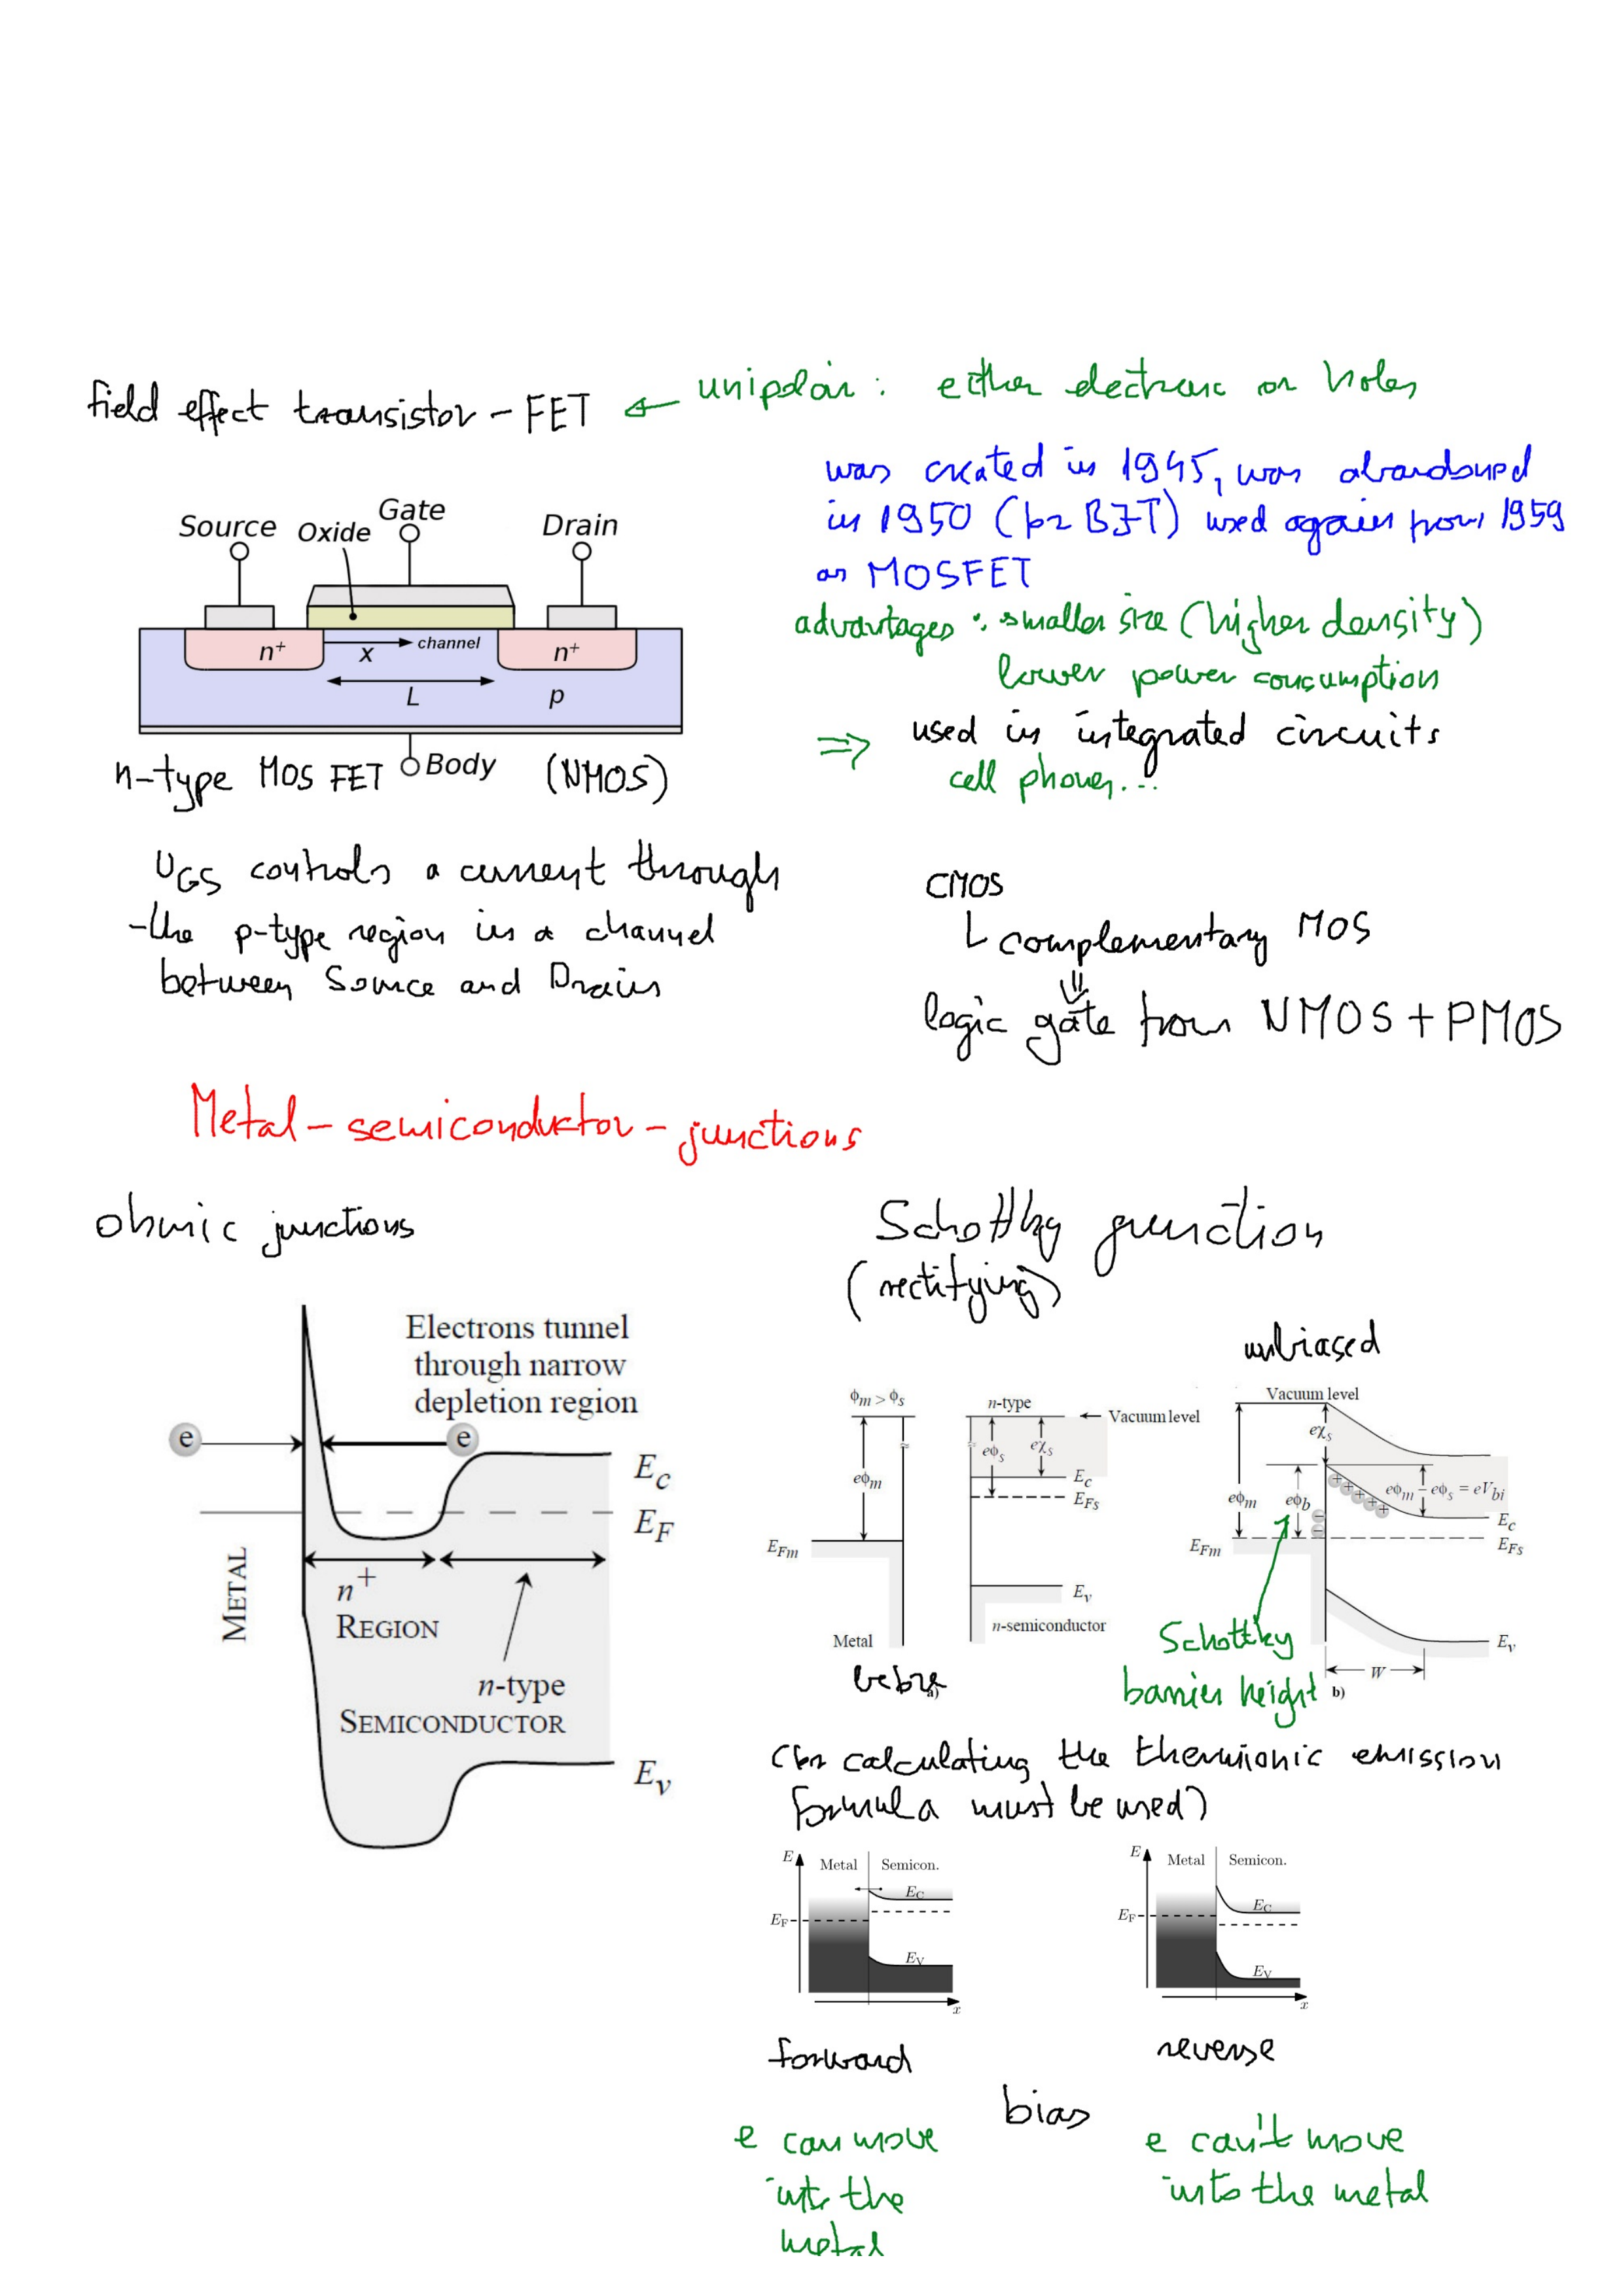 field effect transistor – FET ← unipolar: either electrons or holes
was created in 1945, was abandoned
in 1950 (for BJT) used again from 1959
as MOSFET
advantages: smaller size (higher density)
lower power consumption
⇒ used in integrated circuits
cell phones...
Source Oxide Gate Drain
n+ x channel n+
L p
Body
n-type MOS FET (NMOS)
U_GS controls a current through
the p-type region in a channel
between Source and Drain
CMOS
complementary MOS
⇓
logic gate from NMOS + PMOS
Metal-semiconductor-junctions
ohmic junctions
Electrons tunnel
through narrow
depletion region
e e
E_c
E_F
METAL
n+
REGION
n-type
SEMICONDUCTOR
E_v
Schottky junction
(rectifying)
unbiased
ϕ_m > ϕ_s
n-type
Vacuum level
eϕ_s eχ_s
eϕ_m
E_c
E_Fs
E_Fm
E_v
n-semiconductor
Metal
before
a)
Vacuum level
eχ_s
eϕ_m eϕ_b eϕ_m – eϕ_s = eV_bi
E_c
E_Fm E_Fs
E_v
W
b)
Schottky
barrier height
(for calculating the thermionic emission
formula must be used)
E Metal Semicon.
E_C
E_F
E_V
x
E Metal Semicon.
E_C
E_F
E_V
x
forward reverse
bias
e can move
into the
metal
e can't move
into the metal